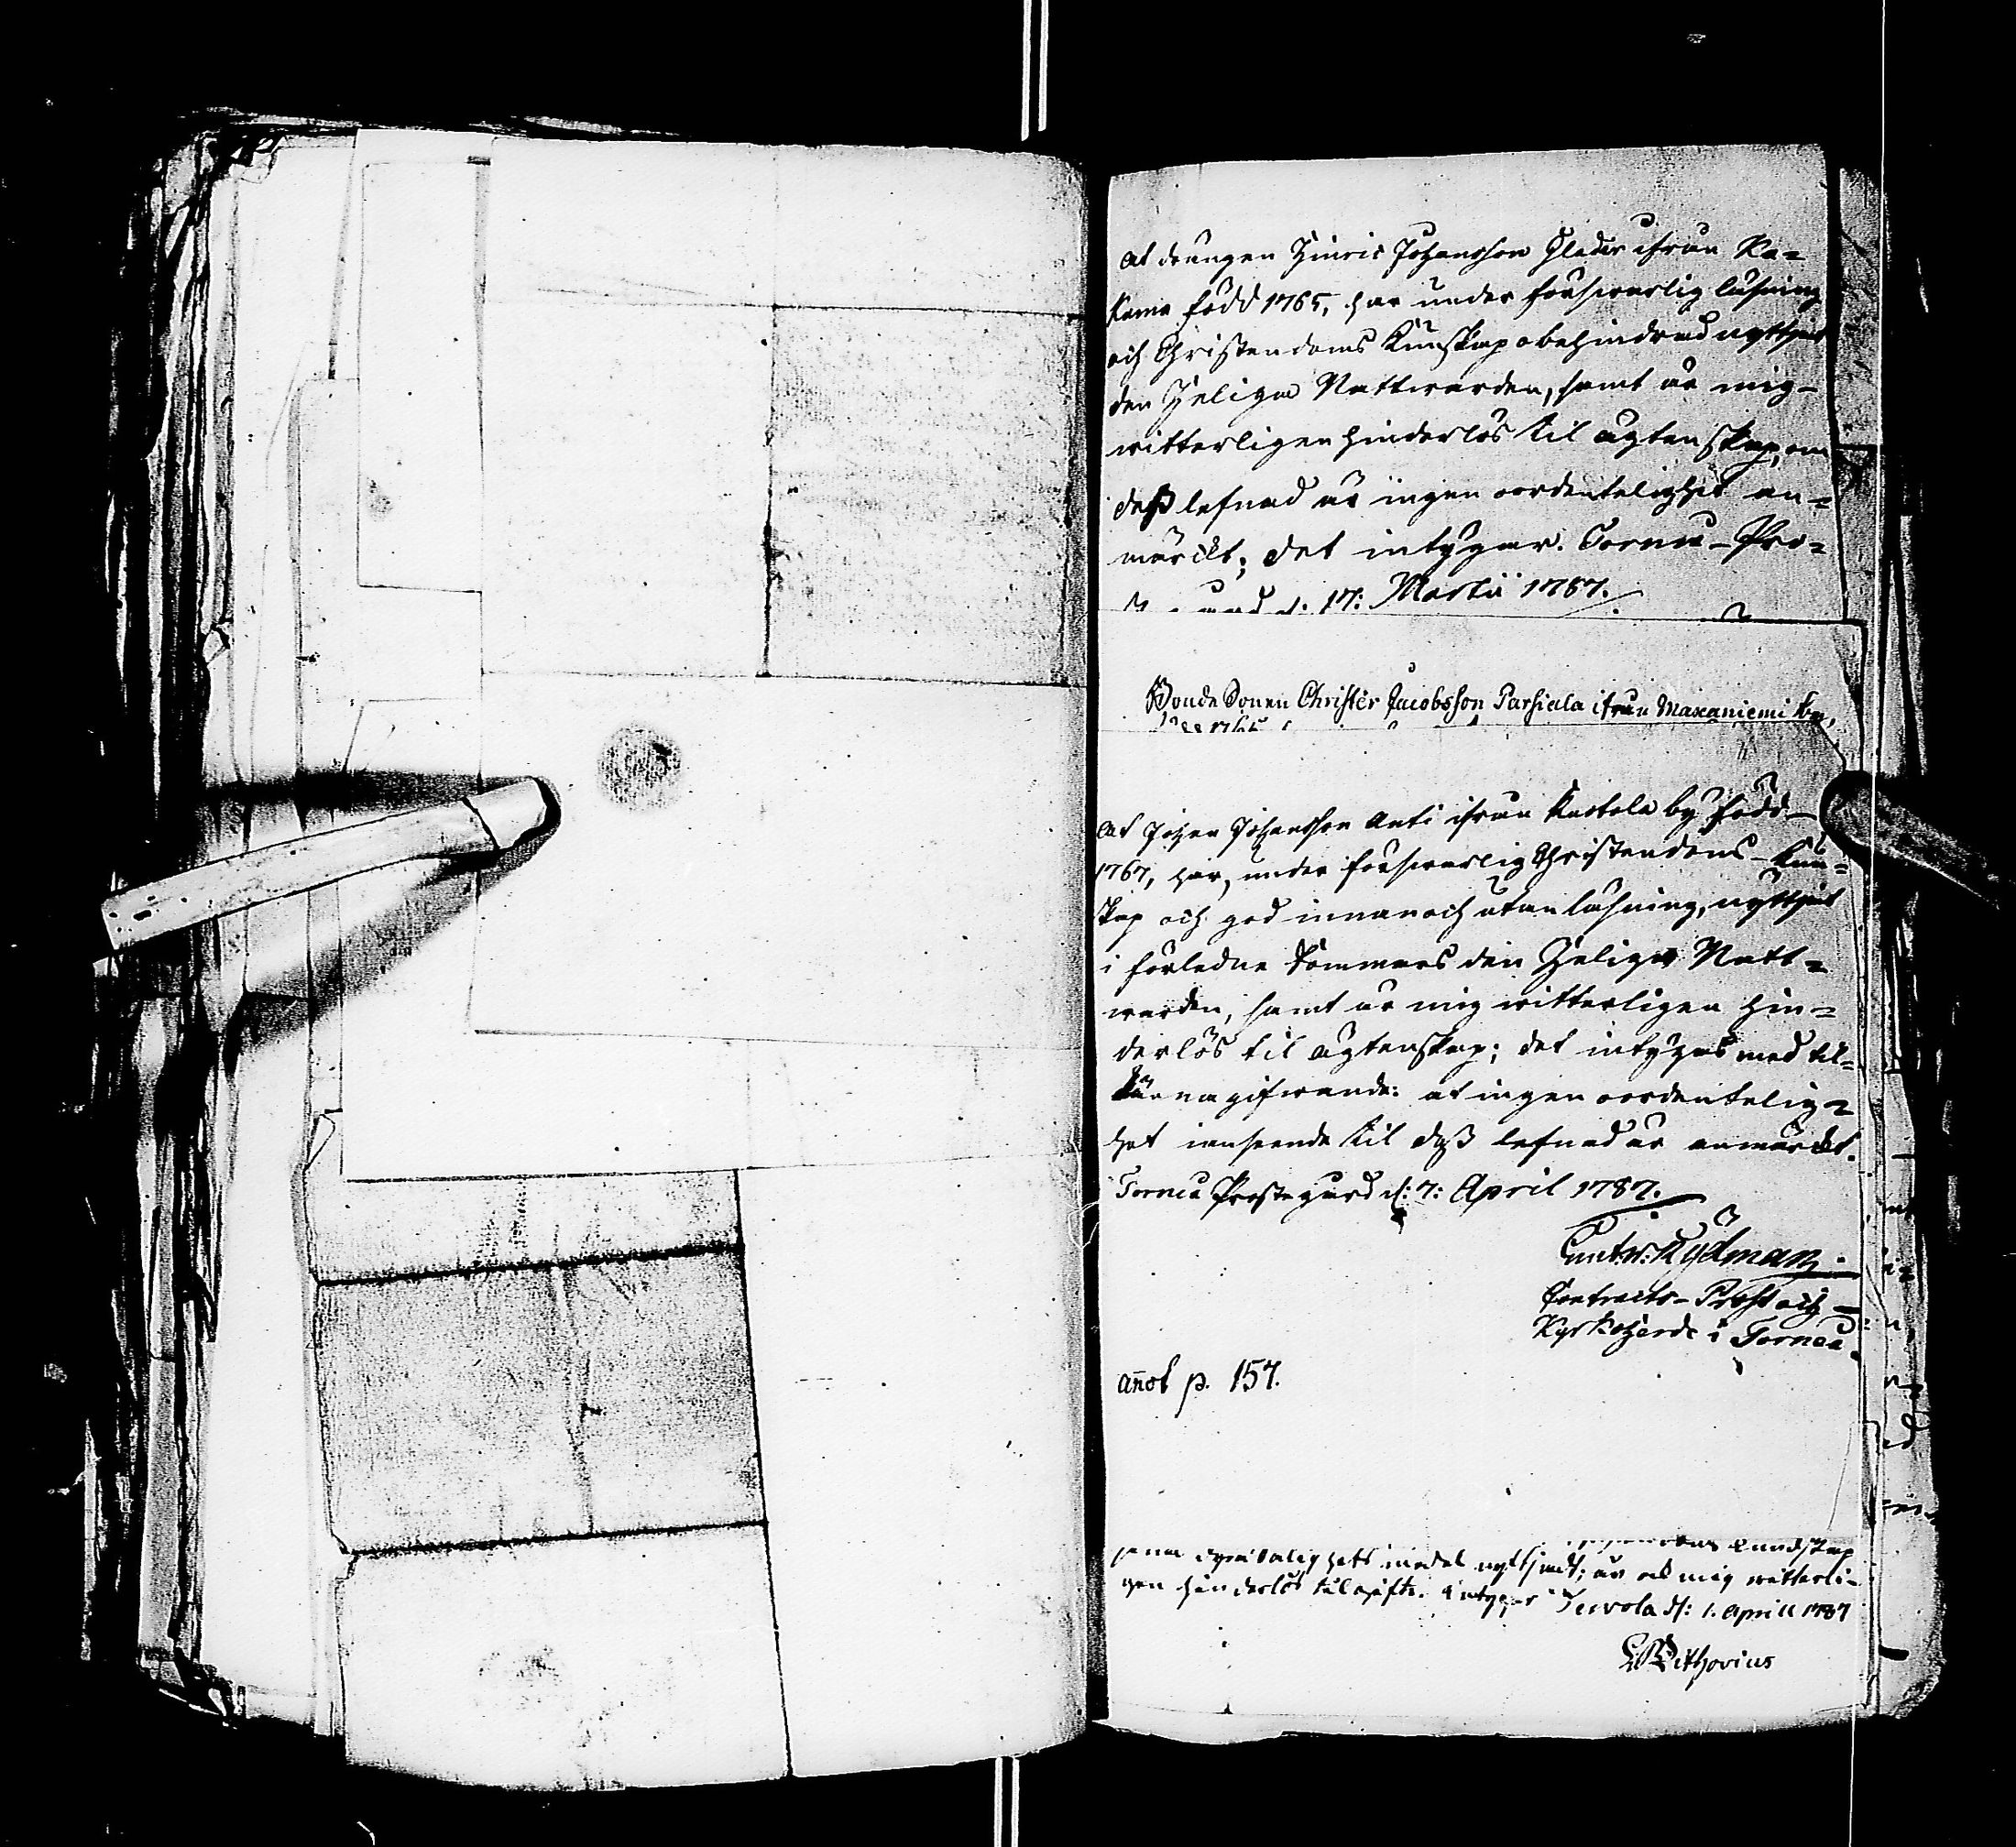 at drängen Hinric Johansson Hladir ifrån Ka=
kama född 1765, har under försvarlig läsning
och Christendoms Kunskap obehindrad nyttjat
den Heliga Nattwarden, samt är mig
witterligen hinderlös til ägtenskap, om
dess lefnad är ingen oordentelighet an=
märckt; det intygar. Torneå Pro=
d. 17: Martii 1787.
Bonde Sonen Christer Jacobsson Parsiala ifrån Maxaniemi by,
1765
At Johan Johansson Anti ifrån Kustola by född
1767, har, under försvarlig Christendoms Kun=
skap och god innan och utan läsning, nyttjat
i förledne Sommars den Heliga Natt=
warden, samt är mig witterligen hin=
derlös til ägtenskap; det intygas med til=
känna gifwande: at ingen oordentelig=
het i anseende til dess lefnad är anmärckt.
Torneå Prostegård d: 7: April 1787.
Rydman
Contracts-Prost och
Kyrkoherde i Torneå.
añot p. 157.
kundskap
salighets medel nyttjadt; är ock mig witterli-
gen hinderlös til gifte. Intygar Tervola d: 1. April 1787
Withovius